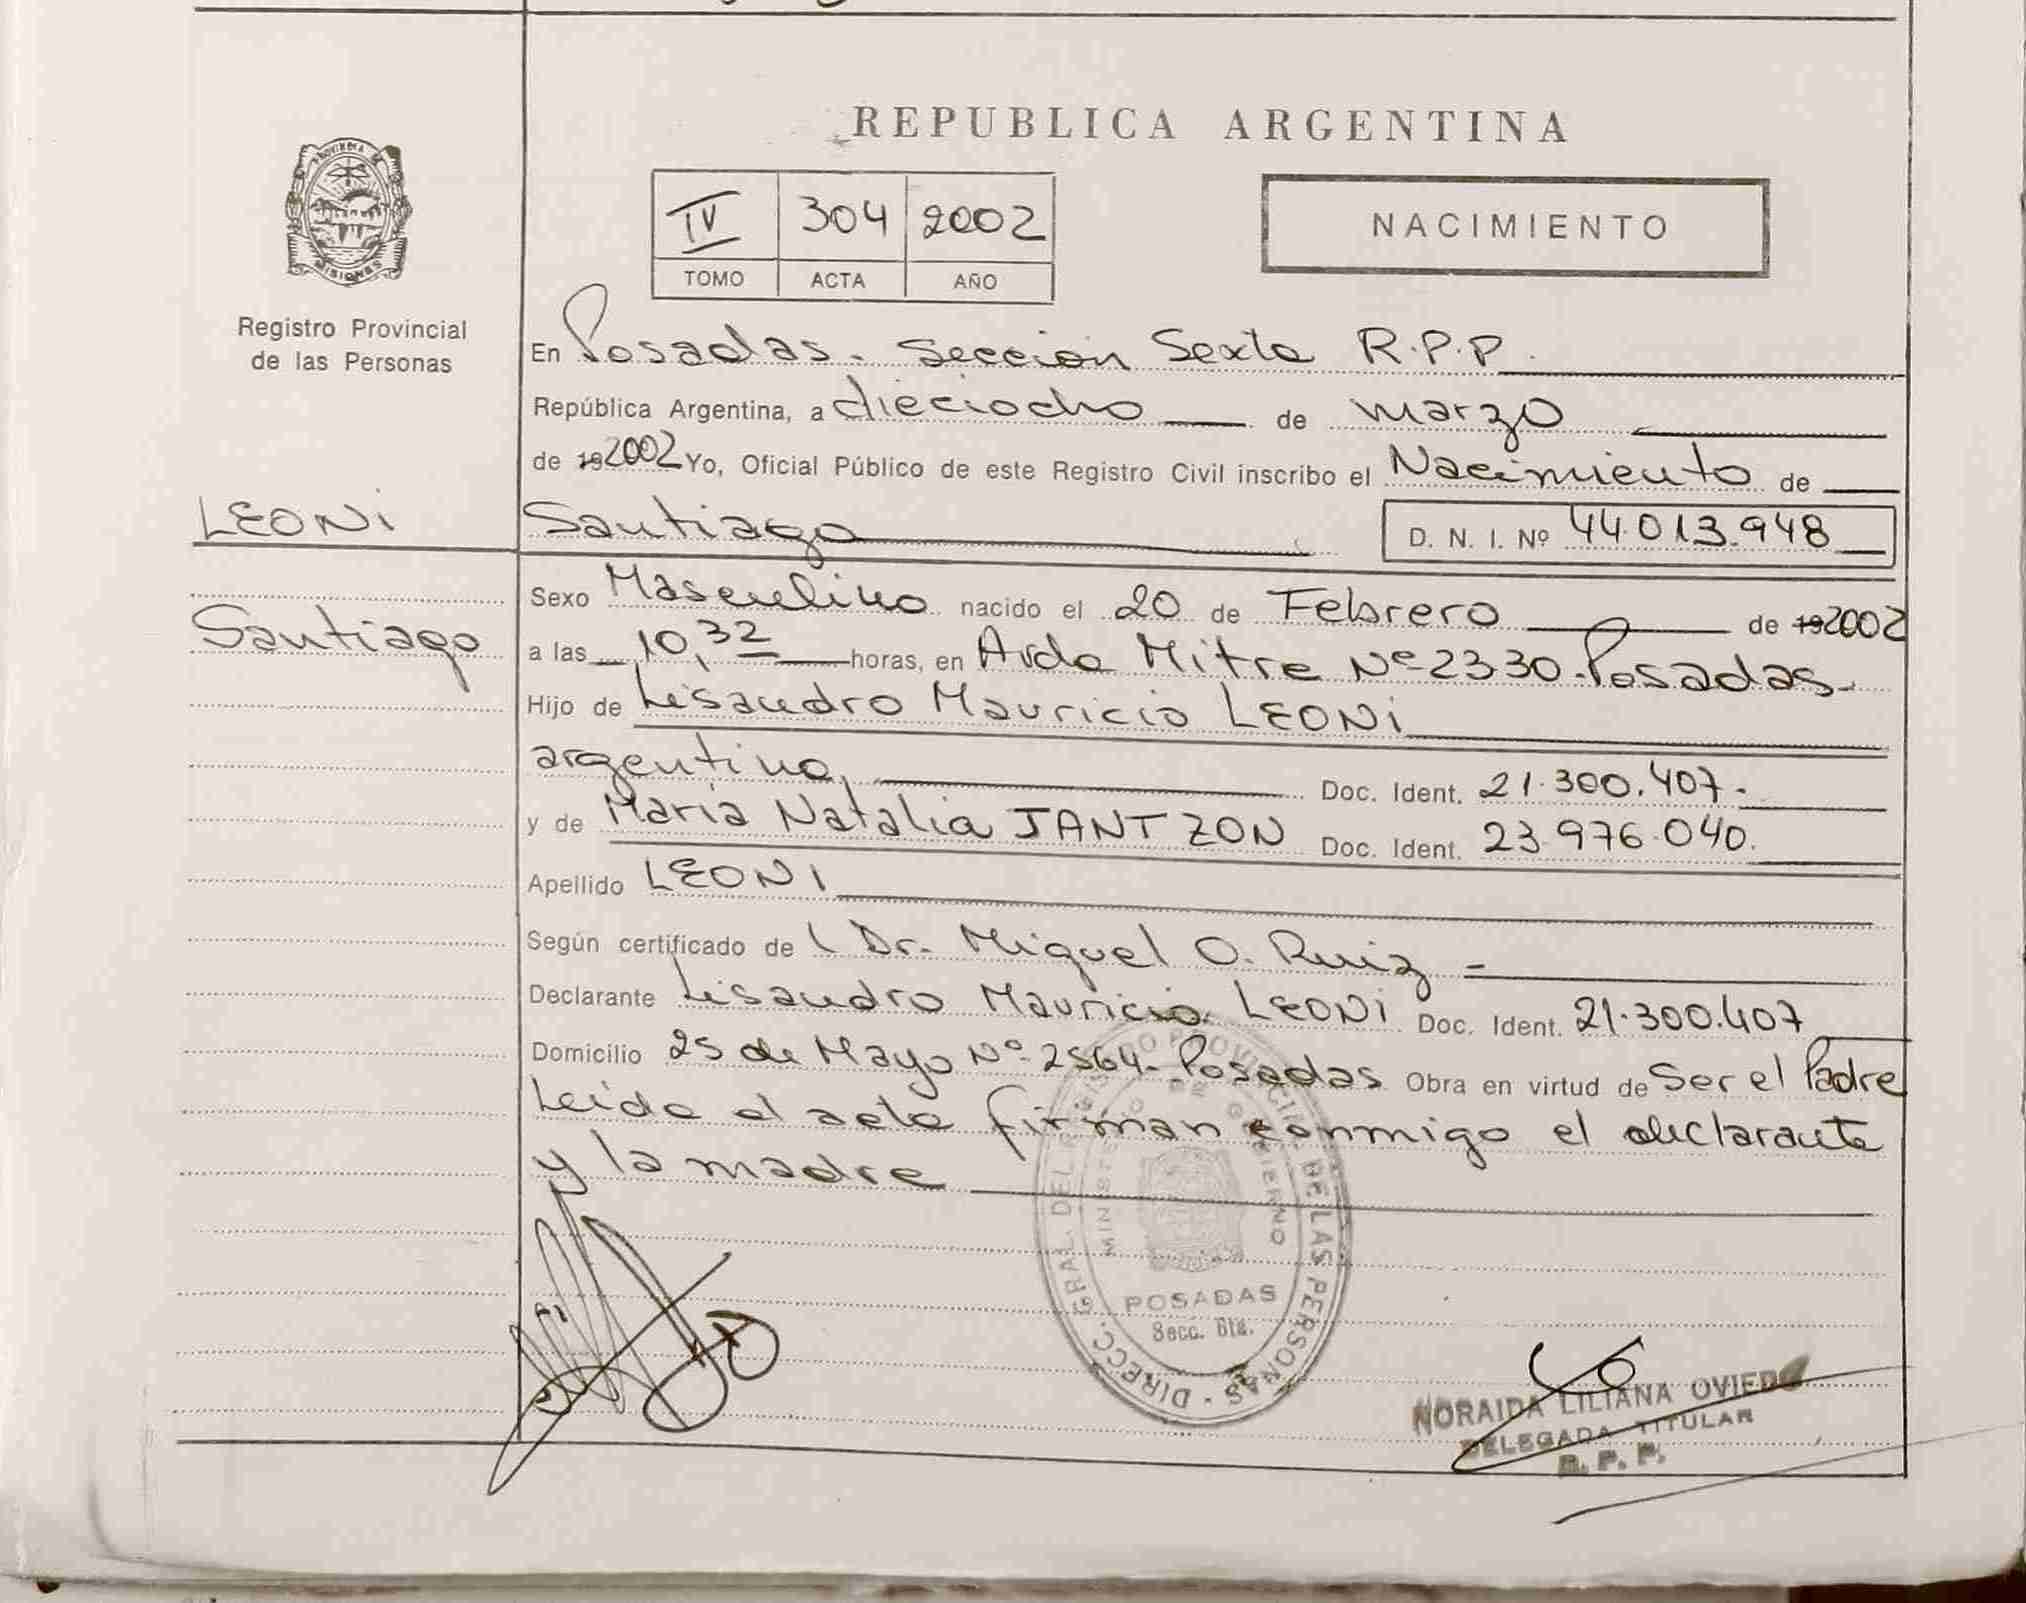 REPUBLICA ARGENTINA
PROVINCIA DE
MISIONES
Registro Provincial
de las Personas
IV 304 2002
TOMO ACTA AÑO
NACIMIENTO
En Posadas - Sección Sexta R.P.P.
República Argentina, a dieciocho de marzo
de 192002 Yo, Oficial Público de este Registro Civil inscribo el Nacimiento de
LEONI Santiago D. N. I. Nº 44.013.948
Sexo Masculino nacido el 20 de Febrero de 192002
Santiago
a las 10,32 horas, en Avda Mitre Nº 2330 - Posadas -
Hijo de Lisandro Mauricio LEONI
argentino, Doc. Ident. 21.300.407 -
y de María Natalia JANTZON Doc. Ident. 23.976.040.
Apellido LEONI
Según certificado de Dr. Miguel O. Ruiz -
Declarante Lisandro Mauricio LEONI Doc. Ident. 21.300.407
Domicilio 25 de Mayo Nº 2564 - Posadas Obra en virtud de Ser el Padre
Leida el acta firman conmigo el declarante
y la madre
DIRECC. GRAL. DEL REGISTRO PROVINCIAL DE LAS PERSONAS
MINISTERIO DE GOBIERNO
POSADAS
Secc. 6ta.
NORAIDA LILIANA OVIEDO
DELEGADA TITULAR
R. P. P.